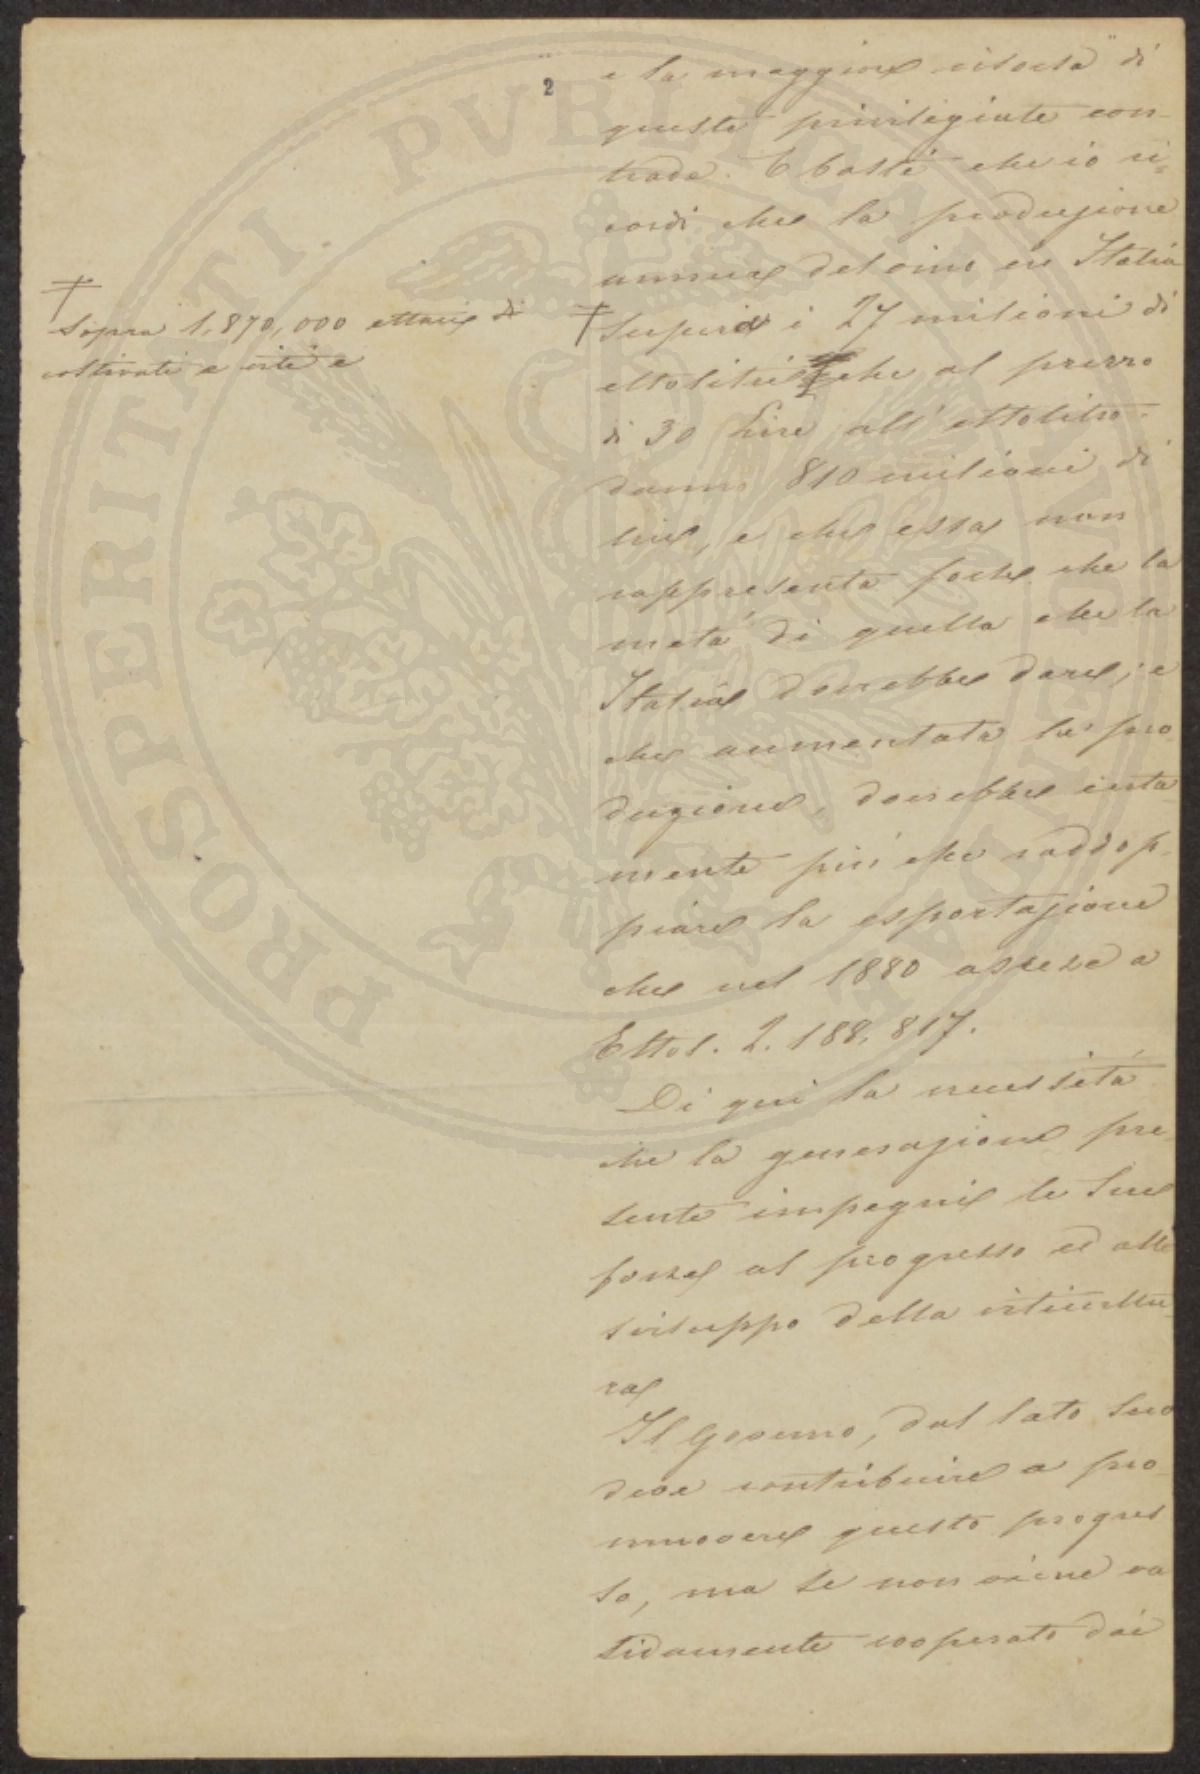 2
e la maggiore risorsa" di
queste privilegiate con-
trade. E basti che io ri-
cordi che la produzione
annua del vino in Italia
‡ supera i 27 milioni di
ettolitri che al prezzo
di 30 Lire all'ettolitro
danno 810 milioni di
lire, e che essa non
rappresenta forse che la
metà di quella che la
Italia dovrebbe dare; e
che aumentata la pro
duzione, dovrebbe certa
mente più che raddop-
piare la esportazione
che nel 1880 ascese a
Ettol. 2.188,817.
Di qui la necessità
che la generazione pre
sente impegni le sue
forze al progresso ed allo
sviluppo della viticultu
ra
Il Governo, dal lato suo
deve contribuire a pro
muovere questo progres
so, ma se non viene va
lidamente cooperato dai
‡
Sopra 1,870,000 ettari di
coltivati a viti e
PROSPERITATI PVBLICAE AVGENDAE